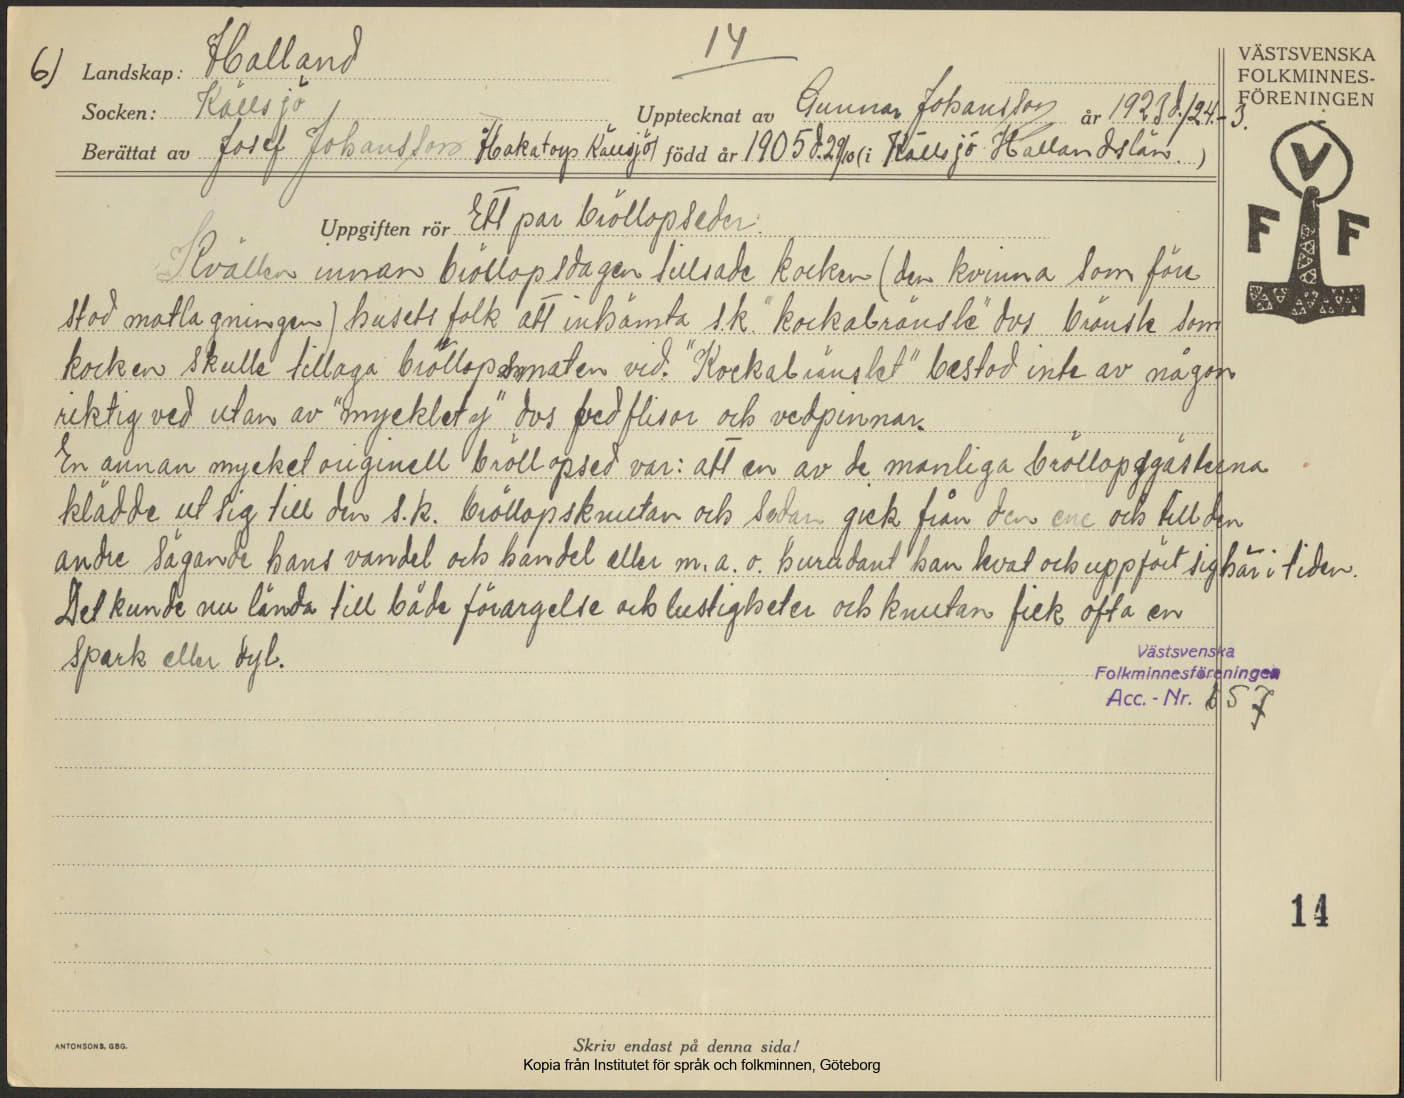 6)
14
Landskap: Halland
Socken: Källsjö
Upptecknat av Gunnar Johansson år 1923 d. 1/24-3.
Berättat av Josef Johansson Håkatorp Källsjö född år 1905 d. 29/10 (i Källsjö Hallandslän.)
VÄSTSVENSKA
FOLKMINNES-
FÖRENINGEN
V
F F
Uppgiften rör Ett par bröllopseder.
Kvällen innan bröllopsdagen tillsade kocken (den kvinna som före
stod matlagningen) husets folk att inhämta s.k. "kockabränsle" dvs bränsle som
kocken skulle tillaga bröllopsmaten vid. "Kockabränslet" bestod inte av någon
riktig ved utan av "mycklety" dvs vedflisor och vedpinnar.
En annan mycket originell bröllopsed var: att en av de manliga bröllopsgästerna
klädde ut sig till den s.k. bröllopsknutan och sedan gick från den ene och till den
andre sägande hans vandel och handel eller m.a.o. hurudant han levat och uppfört sig här i tiden.
Det kunde nu lända till både förargelse och lustigheter och knutan fick ofta en
spark eller dyl.
Västsvenska
Folkminnesföreningen
Acc. - Nr. 657
14
ANTONSONS, GBG.
Skriv endast på denna sida!
Kopia från Institutet för språk och folkminnen, Göteborg